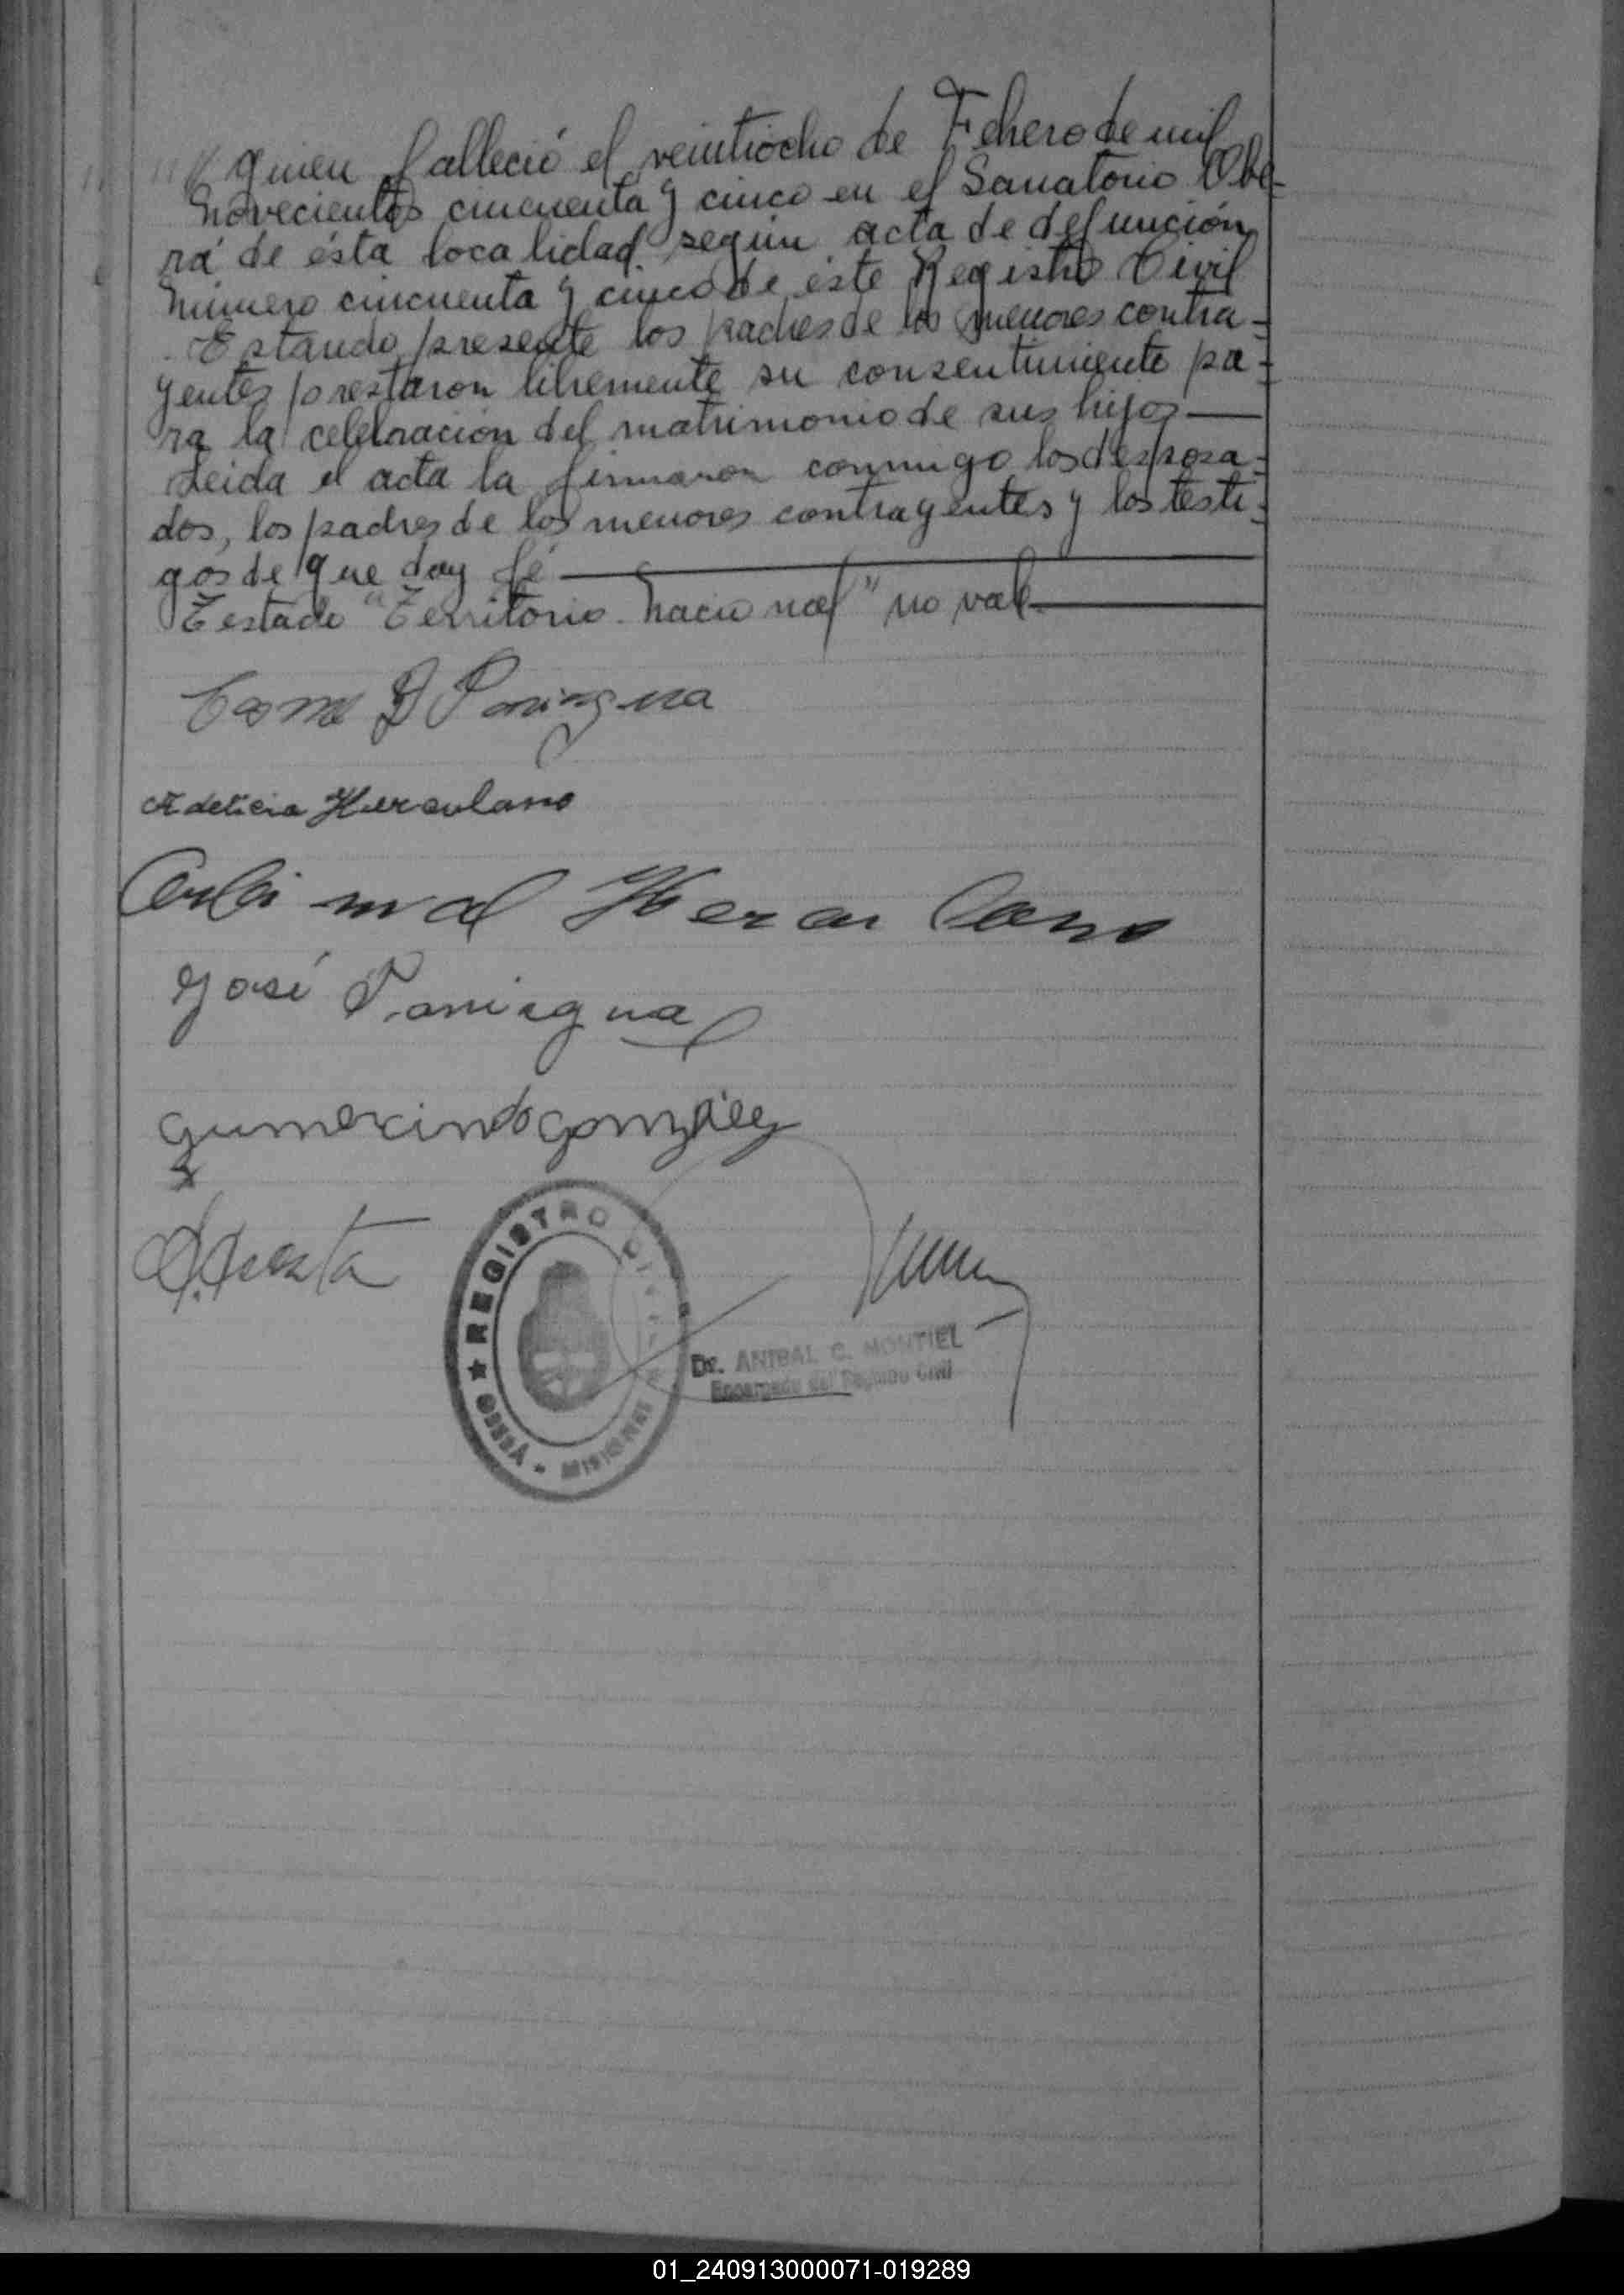 quien falleció el veintiocho de Febrero de mil
novecientos cincuenta y cinco en el Sanatorio Obe-
rá de ésta localidad según acta de defunción
número cincuenta y cinco de éste Registro Civil
Estando presente los padres de los menores contra-
yentes prestaron libremente su consentimiento pa-
ra la celebración del matrimonio de sus hijos
Leida el acta la firmaron conmigo los desposa-
dos, los padres de los menores contrayentes y los testi-
gos de que doy fé
Testado "Territorio nacional" no vale
D Paniagua
Adelicia Herculano
Herculano
José Paniagua
Gumercindo González
Acosta
REGISTRO CIVIL
★ OBERÁ - MISIONES
Dr. ANIBAL C. MONTIEL
Encargado del Registro Civil
01_240913000071-019289